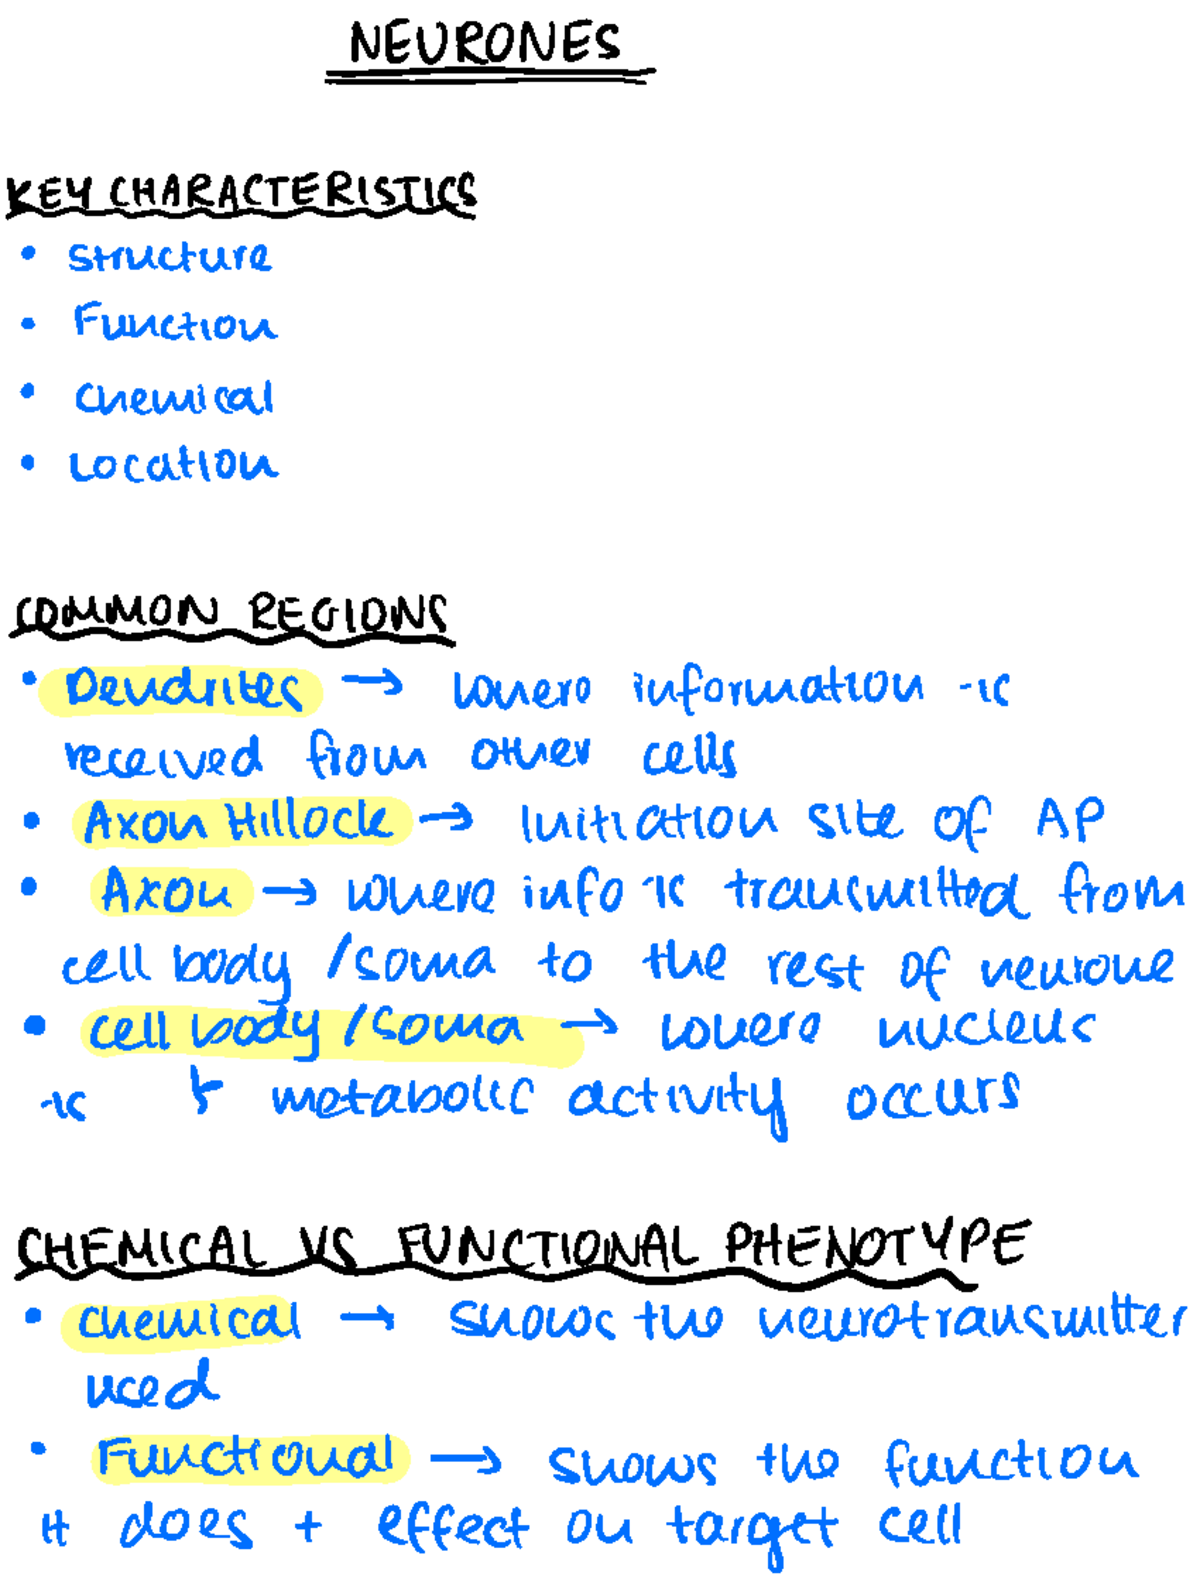 NEURONES
KEY CHARACTERISTICS
• Structure
• Function
• Chemical
• Location
COMMON REGIONS
• Dendrites → where information is
received from other cells
• Axon Hillock → Initiation site of AP
• Axon → where info is transmitted from
cell body /soma to the rest of neurone
• cell body /soma → where nucleus
is & metabolic activity occurs
CHEMICAL VS FUNCTIONAL PHENOTYPE
• chemical → shows the neurotransmitter
used
• Functional → shows the function
it does + effect on target cell